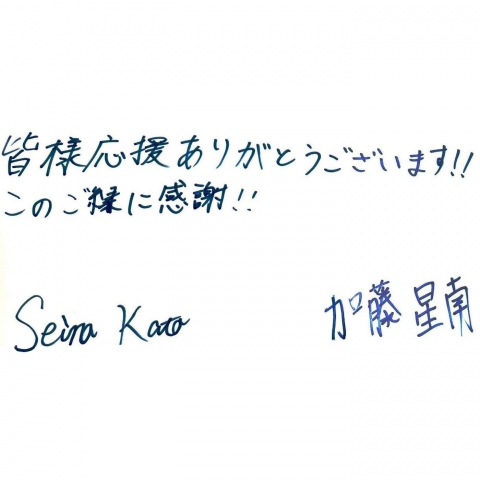 皆様応援ありがとうございます!!
このご縁に感謝!!
Seira Kato
加藤星南